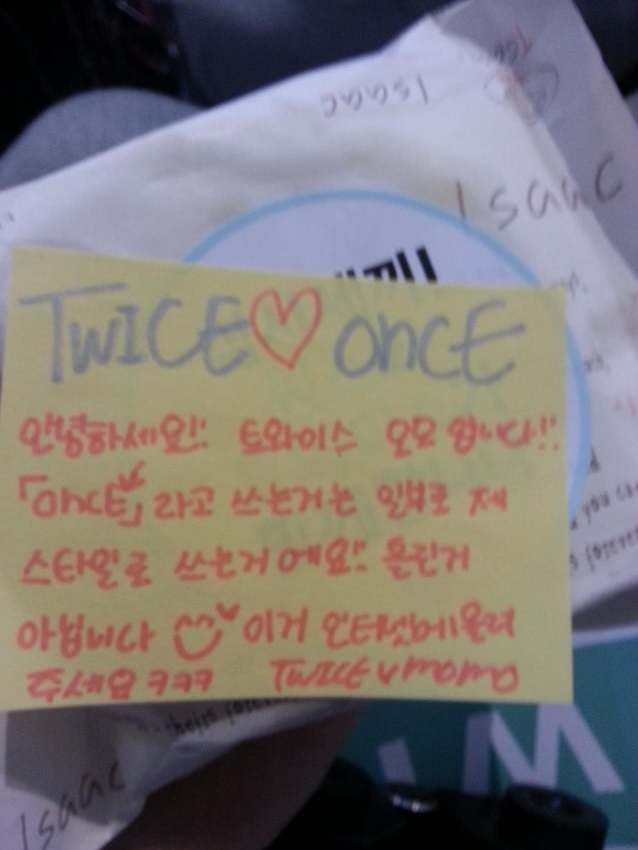 Isaac
Isaac
TWICE♡oncE
안녕하세요!! 트와이스 모모 입니다!!
「oncE」라고 쓰는거는 일부로 제
스타일로 쓰는거에요!! 틀린거
아닙니다 이거 인터넷에올려
주세요 ㅋㅋㅋ TWICE momo
Isaac